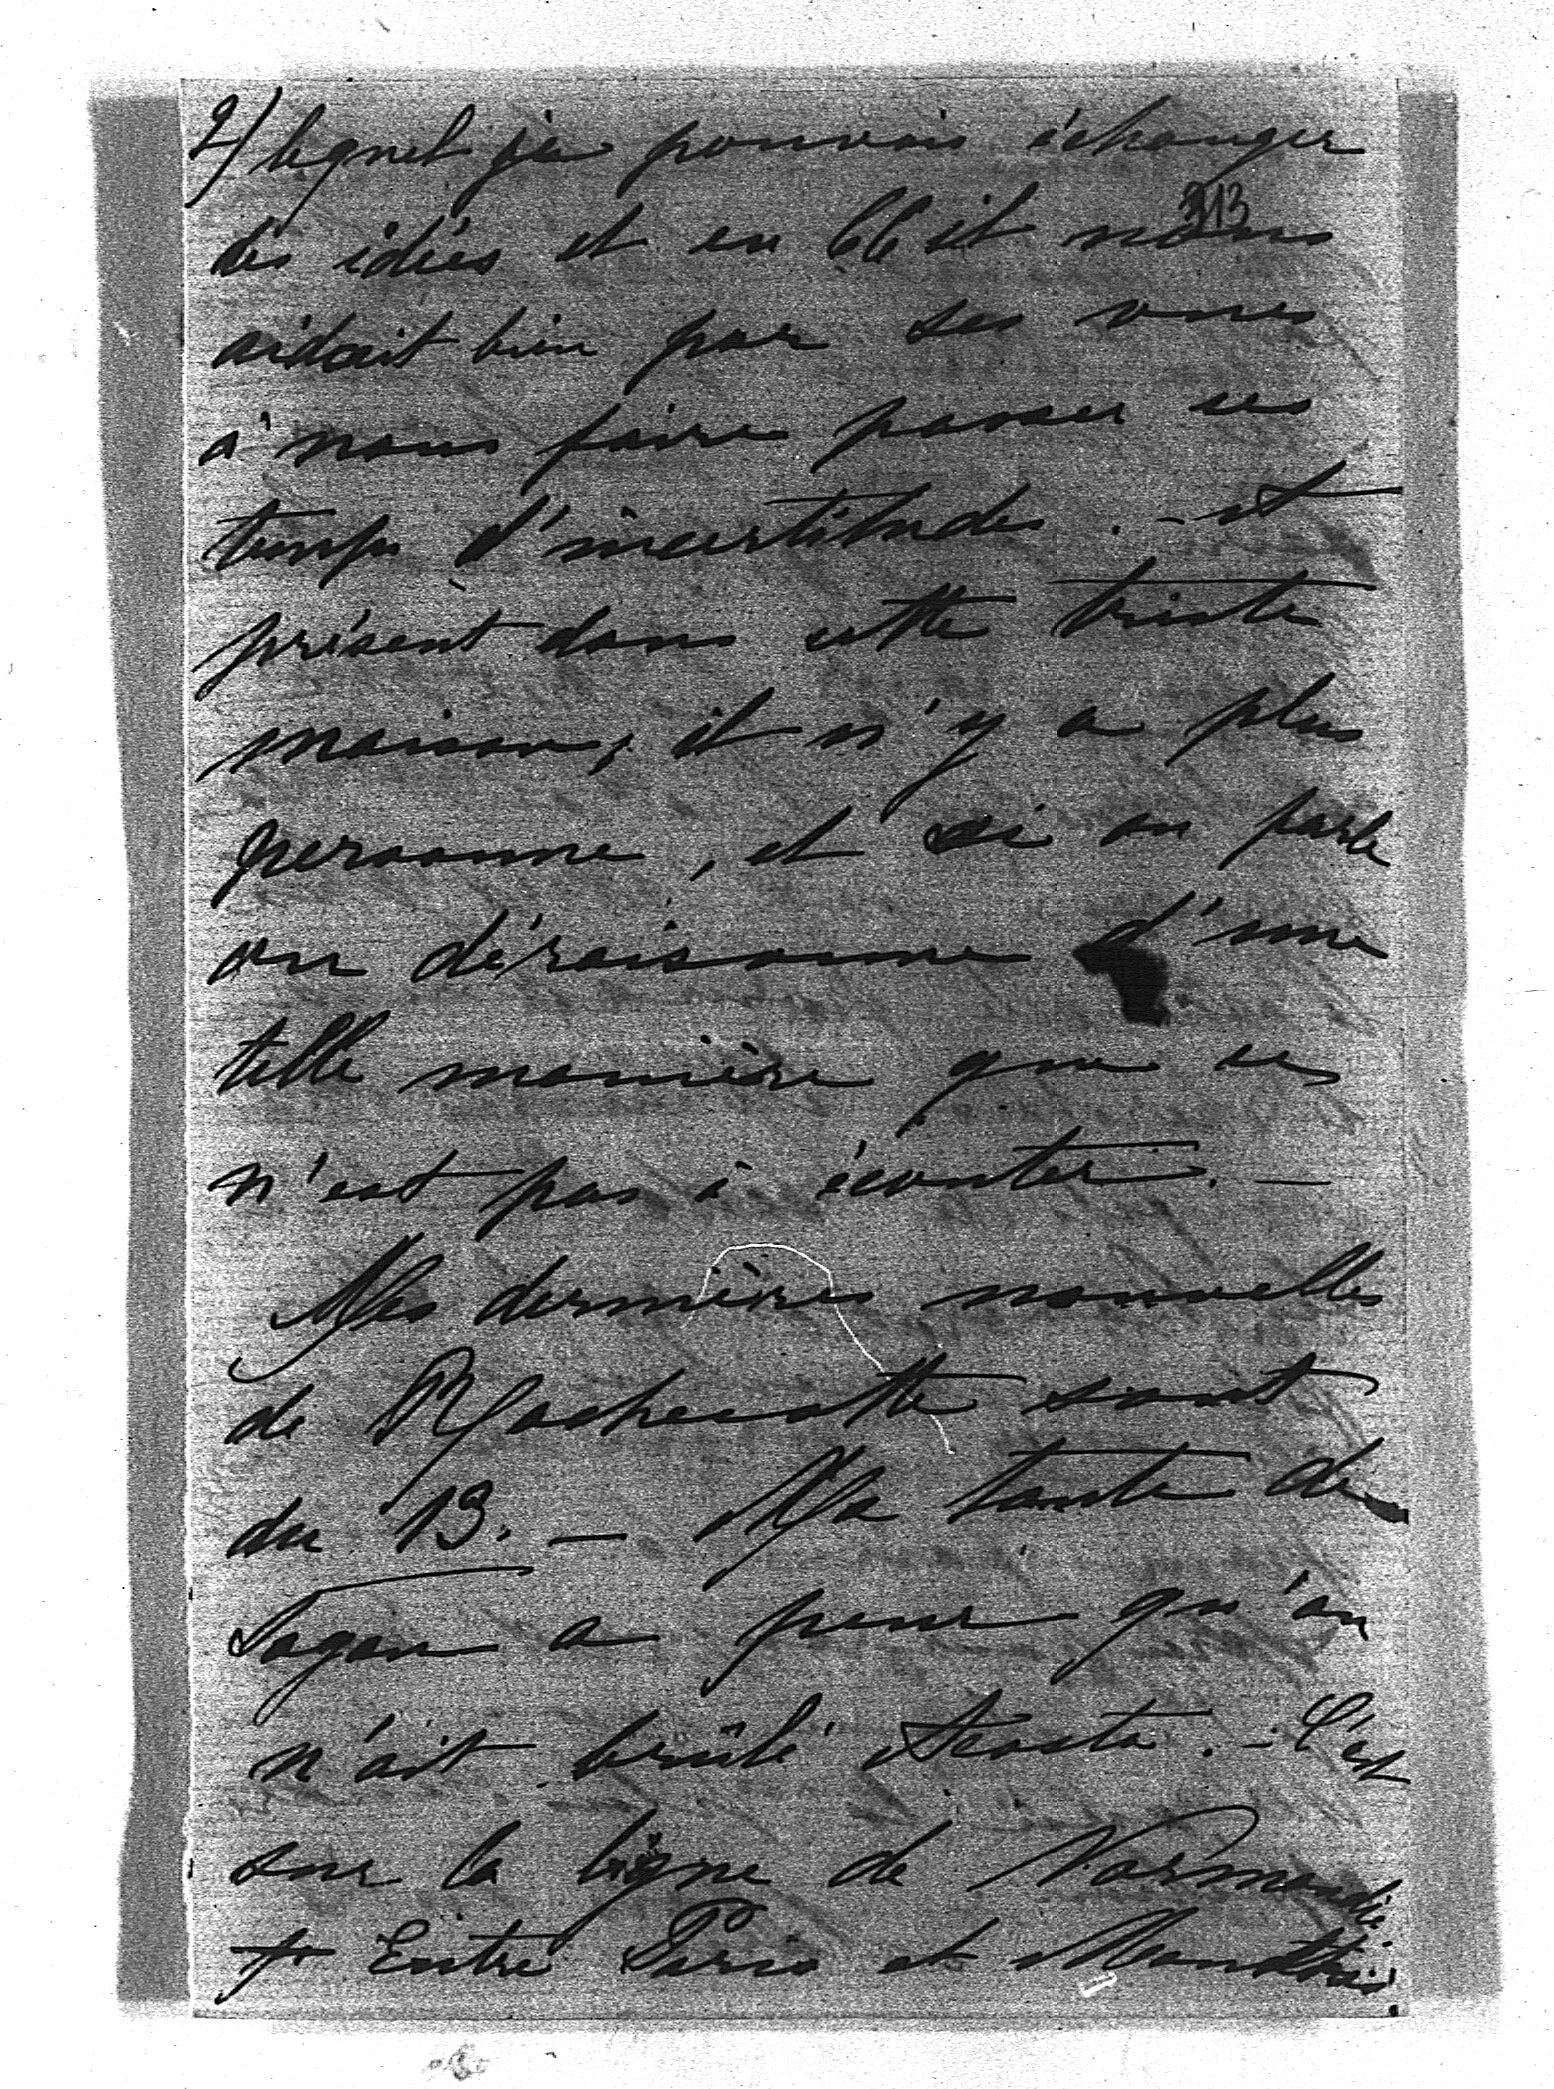 2/ lequel je pouvais échanger
313
des idées et en 66 il nous
aidait bien par ses vues
à nous faire passer ces
temps d'incertitudes. - et
présent dans cette triste
maison, il n'y a plus
personne, et si on parle
on déraisonne d'une
telle manière que ce
n'est pas à écouter. -
Mes dernières nouvelles
de Rochecotte sont
du 13. - Ma tante de
Sagan a peur qu'on
n'ait brûlé Acosta. - C'est
sur la ligne de Normandie
+ Entre Paris et